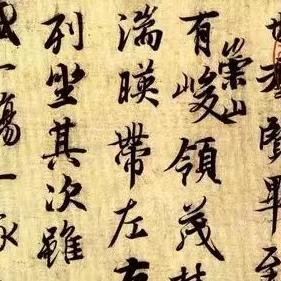 羣賢畢至
有崇山峻領茂林
湍暎帶左右
列坐其次雖
一觴一詠